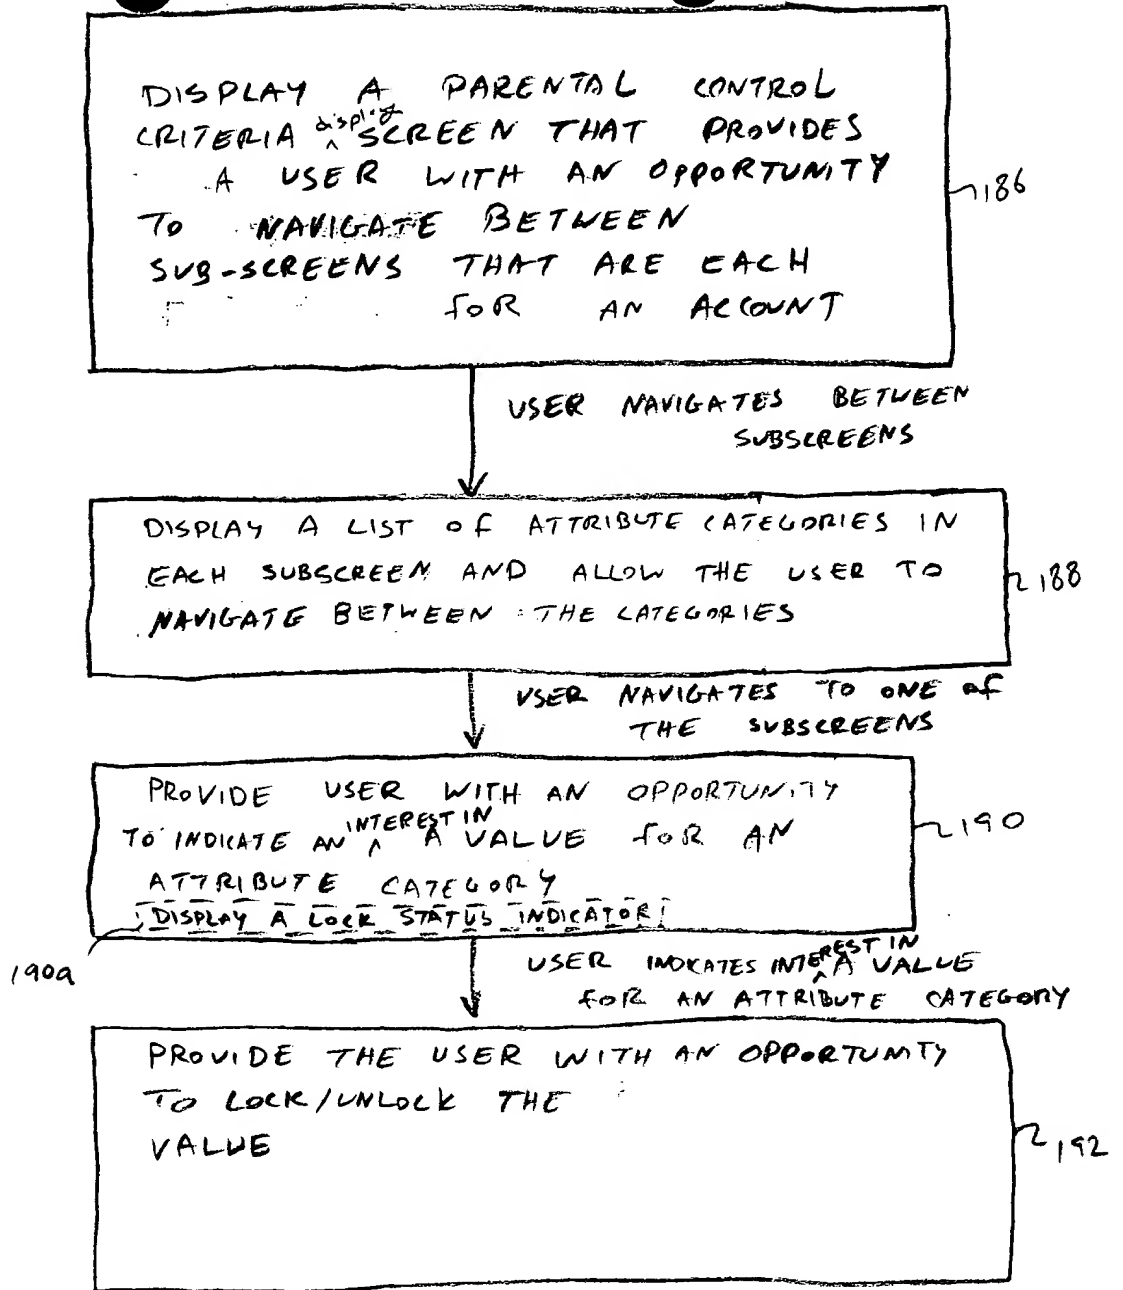 DISPLAY A PARENTAL CONTROL
CRITERIA ^ display SCREEN THAT PROVIDES
A USER WITH AN OPPORTUNITY
TO NAVIGATE BETWEEN
SUB-SCREENS THAT ARE EACH
FOR AN ACCOUNT
186
USER NAVIGATES BETWEEN
SUBSCREENS
DISPLAY A LIST OF ATTRIBUTE CATEGORIES IN
EACH SUBSCREEN AND ALLOW THE USER TO
NAVIGATE BETWEEN THE CATEGORIES
188
USER NAVIGATES TO ONE OF
THE SUBSCREENS
PROVIDE USER WITH AN OPPORTUNITY
TO INDICATE AN ^ INTEREST IN A VALUE FOR AN
ATTRIBUTE CATEGORY
DISPLAY A LOCK STATUS INDICATOR
190
190a
USER INDICATES INTEREST IN ^ A VALUE
FOR AN ATTRIBUTE CATEGORY
PROVIDE THE USER WITH AN OPPORTUNITY
TO LOCK/UNLOCK THE
VALUE
192